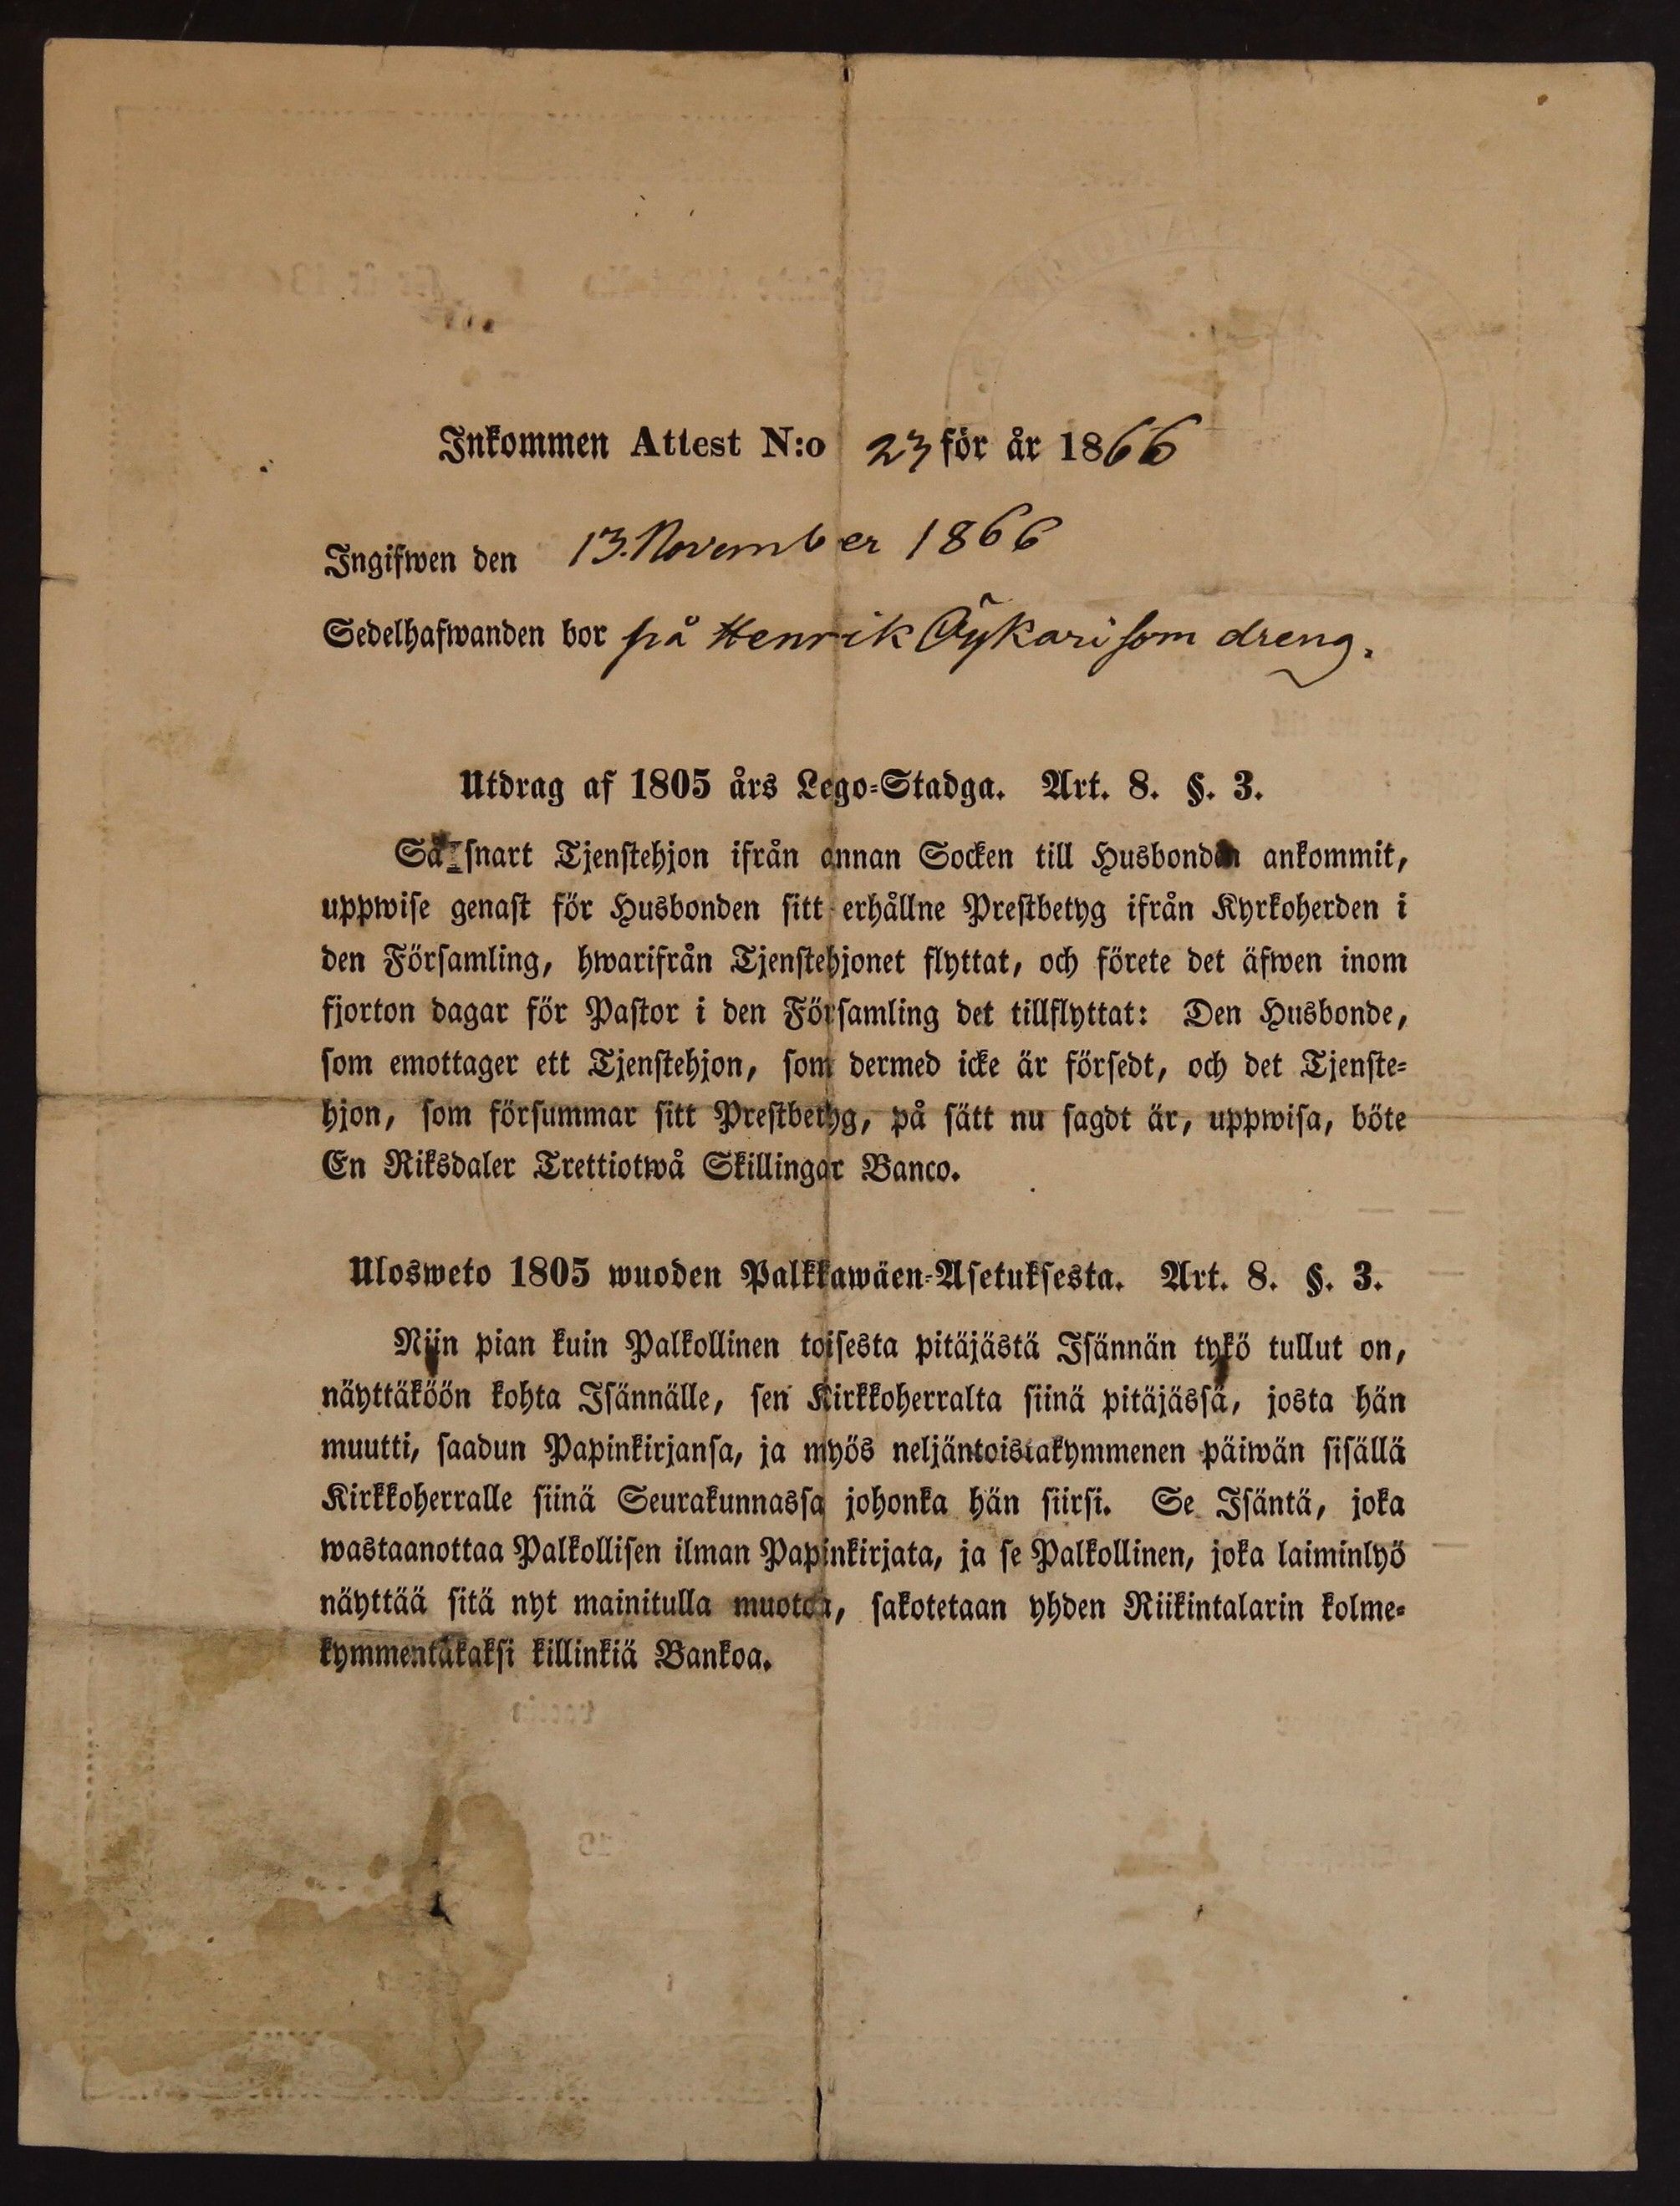 Inkommen Attest N:o 23 för år 1866
Ingifwen den 13. November 1866
Sedelhafwanden bor på Henrik Öykari som dreng.
Utdrag af 1805 års Lego-Stadga. Art. 8. §. 3.
Så snart Tjenstehjon ifrån annan Socken till Husbonden ankommit,
uppwise genast för Husbonden sitt erhållne Prestbetyg ifrån Kyrkoherden i
den Församling, hwarifrån Tjenstehjonet flyttat, och förete det äfwen inom
fjorton dagar för Pastor i den Församling det tillflyttat: Den Husbonde,
som emottager ett Tjenstehjon, som dermed icke är försedt, och det Tjenste-
hjon, som försummar sitt Prestbetyg, på sätt nu sagdt är, uppwisa, böte
En Riksdaler Trettiotwå Skillingar Banco.
Ulosweto 1805 wuoden Palkkawäen-Asetuksesta. Art. 8. §. 3.
Niin pian kuin Palkollinen toisesta pitäjästä Isännän tykö tullut on,
näyttäköön kohta Isännälle, sen Kirkkoherralta siinä pitäjässä, josta hän
muutti, saadun Papinkirjansa, ja myös neljäntoistakymmenen päiwän sisällä
Kirkkoherralle siinä Seurakunnassa johonka hän siirsi. Se Isäntä, joka
wastaanottaa Palkollisen ilman Papinkirjata, ja se Palkollinen, joka laiminlyö
näyttää sitä nyt mainitulla muotoa, sakotetaan yhden Riikintalarin kolme-
kymmentäkaksi killinkiä Bankoa.